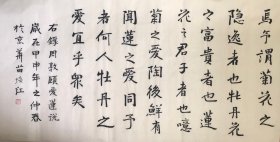 焉予謂菊花之
隱逸者也牡丹花
之富貴者也蓮
花之君子者也噫
菊之愛陶後鮮有
聞蓮之愛同予
者何人牡丹之
愛宜乎眾矣
右錄周敦頤愛蓮說
歲在甲申年之仲春
於京華苗